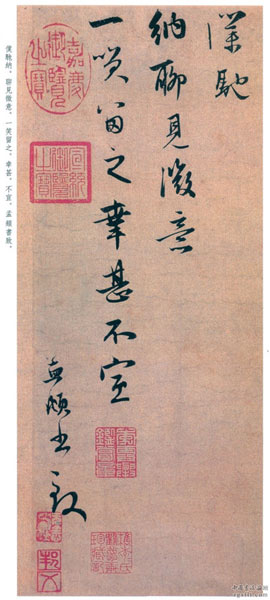 僕馳
納聊見微意
一笑留之幸甚不宣
孟頫書致
嘉慶御覽之寶
宣統御覽之寶
僕馳納，聊見微意，一笑留之，幸甚，不宣，孟頫書致。